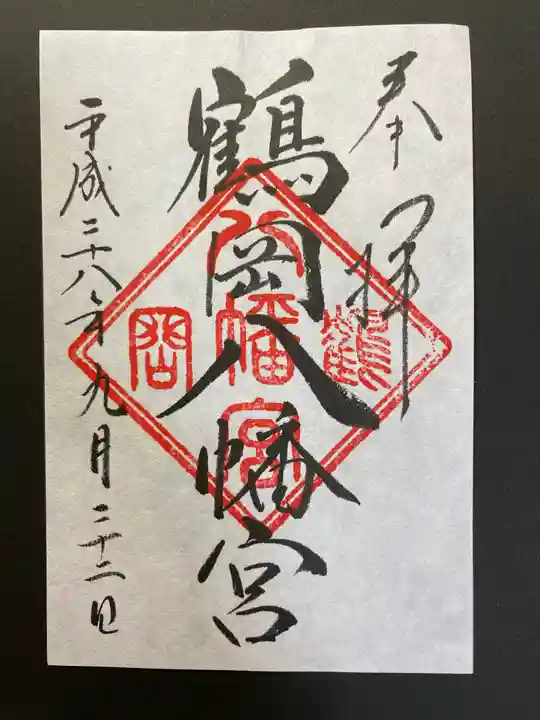 奉拝
鶴岡八幡宮
平成二十八年九月二十二日
鶴
八幡宮
岡